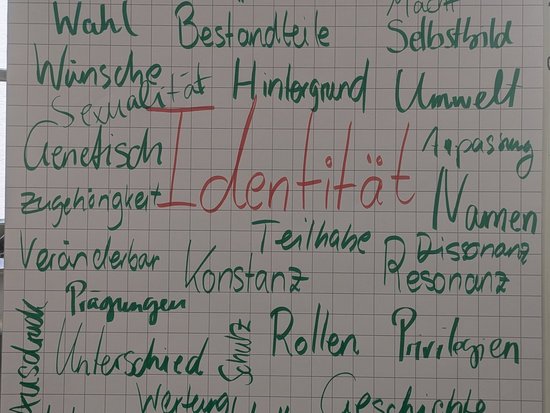 Macht
Wahl Bestandteile Selbstbild
Wünsche Hintergrund Umwelt
Sexualität
Identität
Genetisch Anpassung
Zugehörigkeit Namen
Teilhabe Dissonanz
Veränderbar Konstanz Resonanz
Prägungen
Ausdruck
Unterschied Schutz Rollen Privilegien
Wertung Geschichte